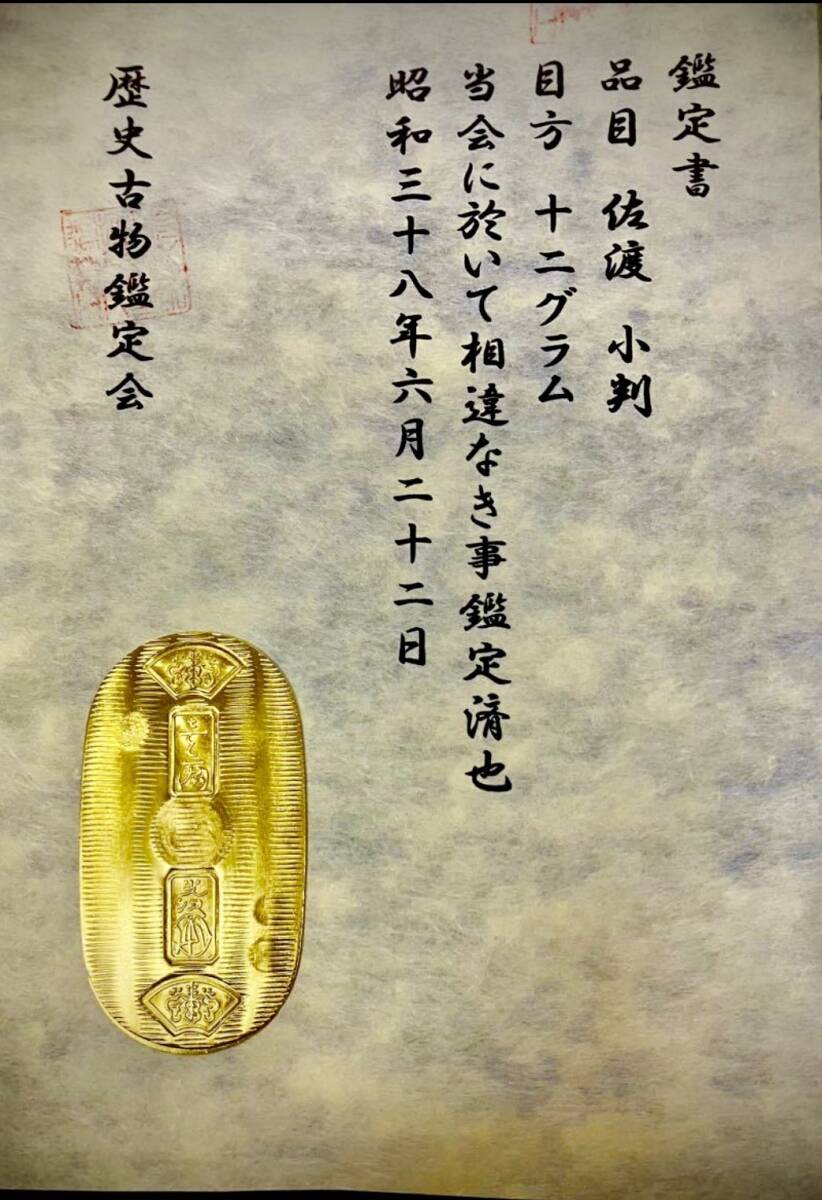 鑑定書
品目 佐渡 小判
目方 十二グラム
当会に於いて相違なき事鑑定済也
昭和三十八年六月二十二日
歴史古物鑑定会